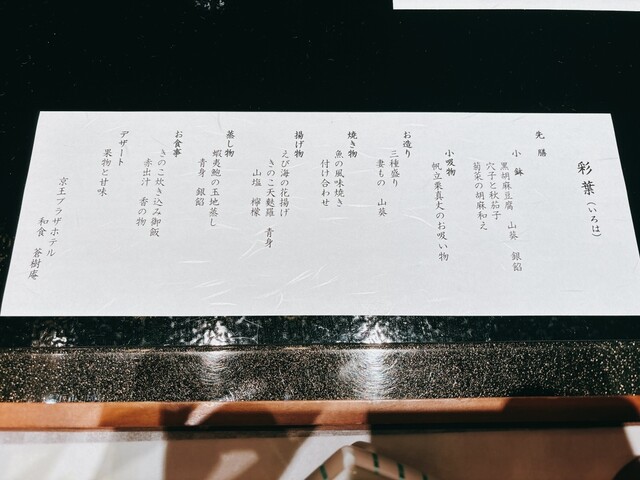 彩葉(いろは)
先膳
小鉢
黒胡麻豆腐 山葵 銀餡
穴子と秋茄子
菊菜の胡麻和え
小吸物
帆立栗真丈のお吸い物
お造り
三種盛り
妻もの 山葵
焼き物
魚の風味焼き
付け合わせ
揚げ物
えび海の花揚げ
きのこ天麩羅 青身
山塩 檸檬
蒸し物
蝦夷鮑の玉地蒸し
青身 銀餡
お食事
きのこ炊き込み御飯
赤出汁 香の物
デザート
果物と甘味
京王プラザホテル
和食 蒼樹庵